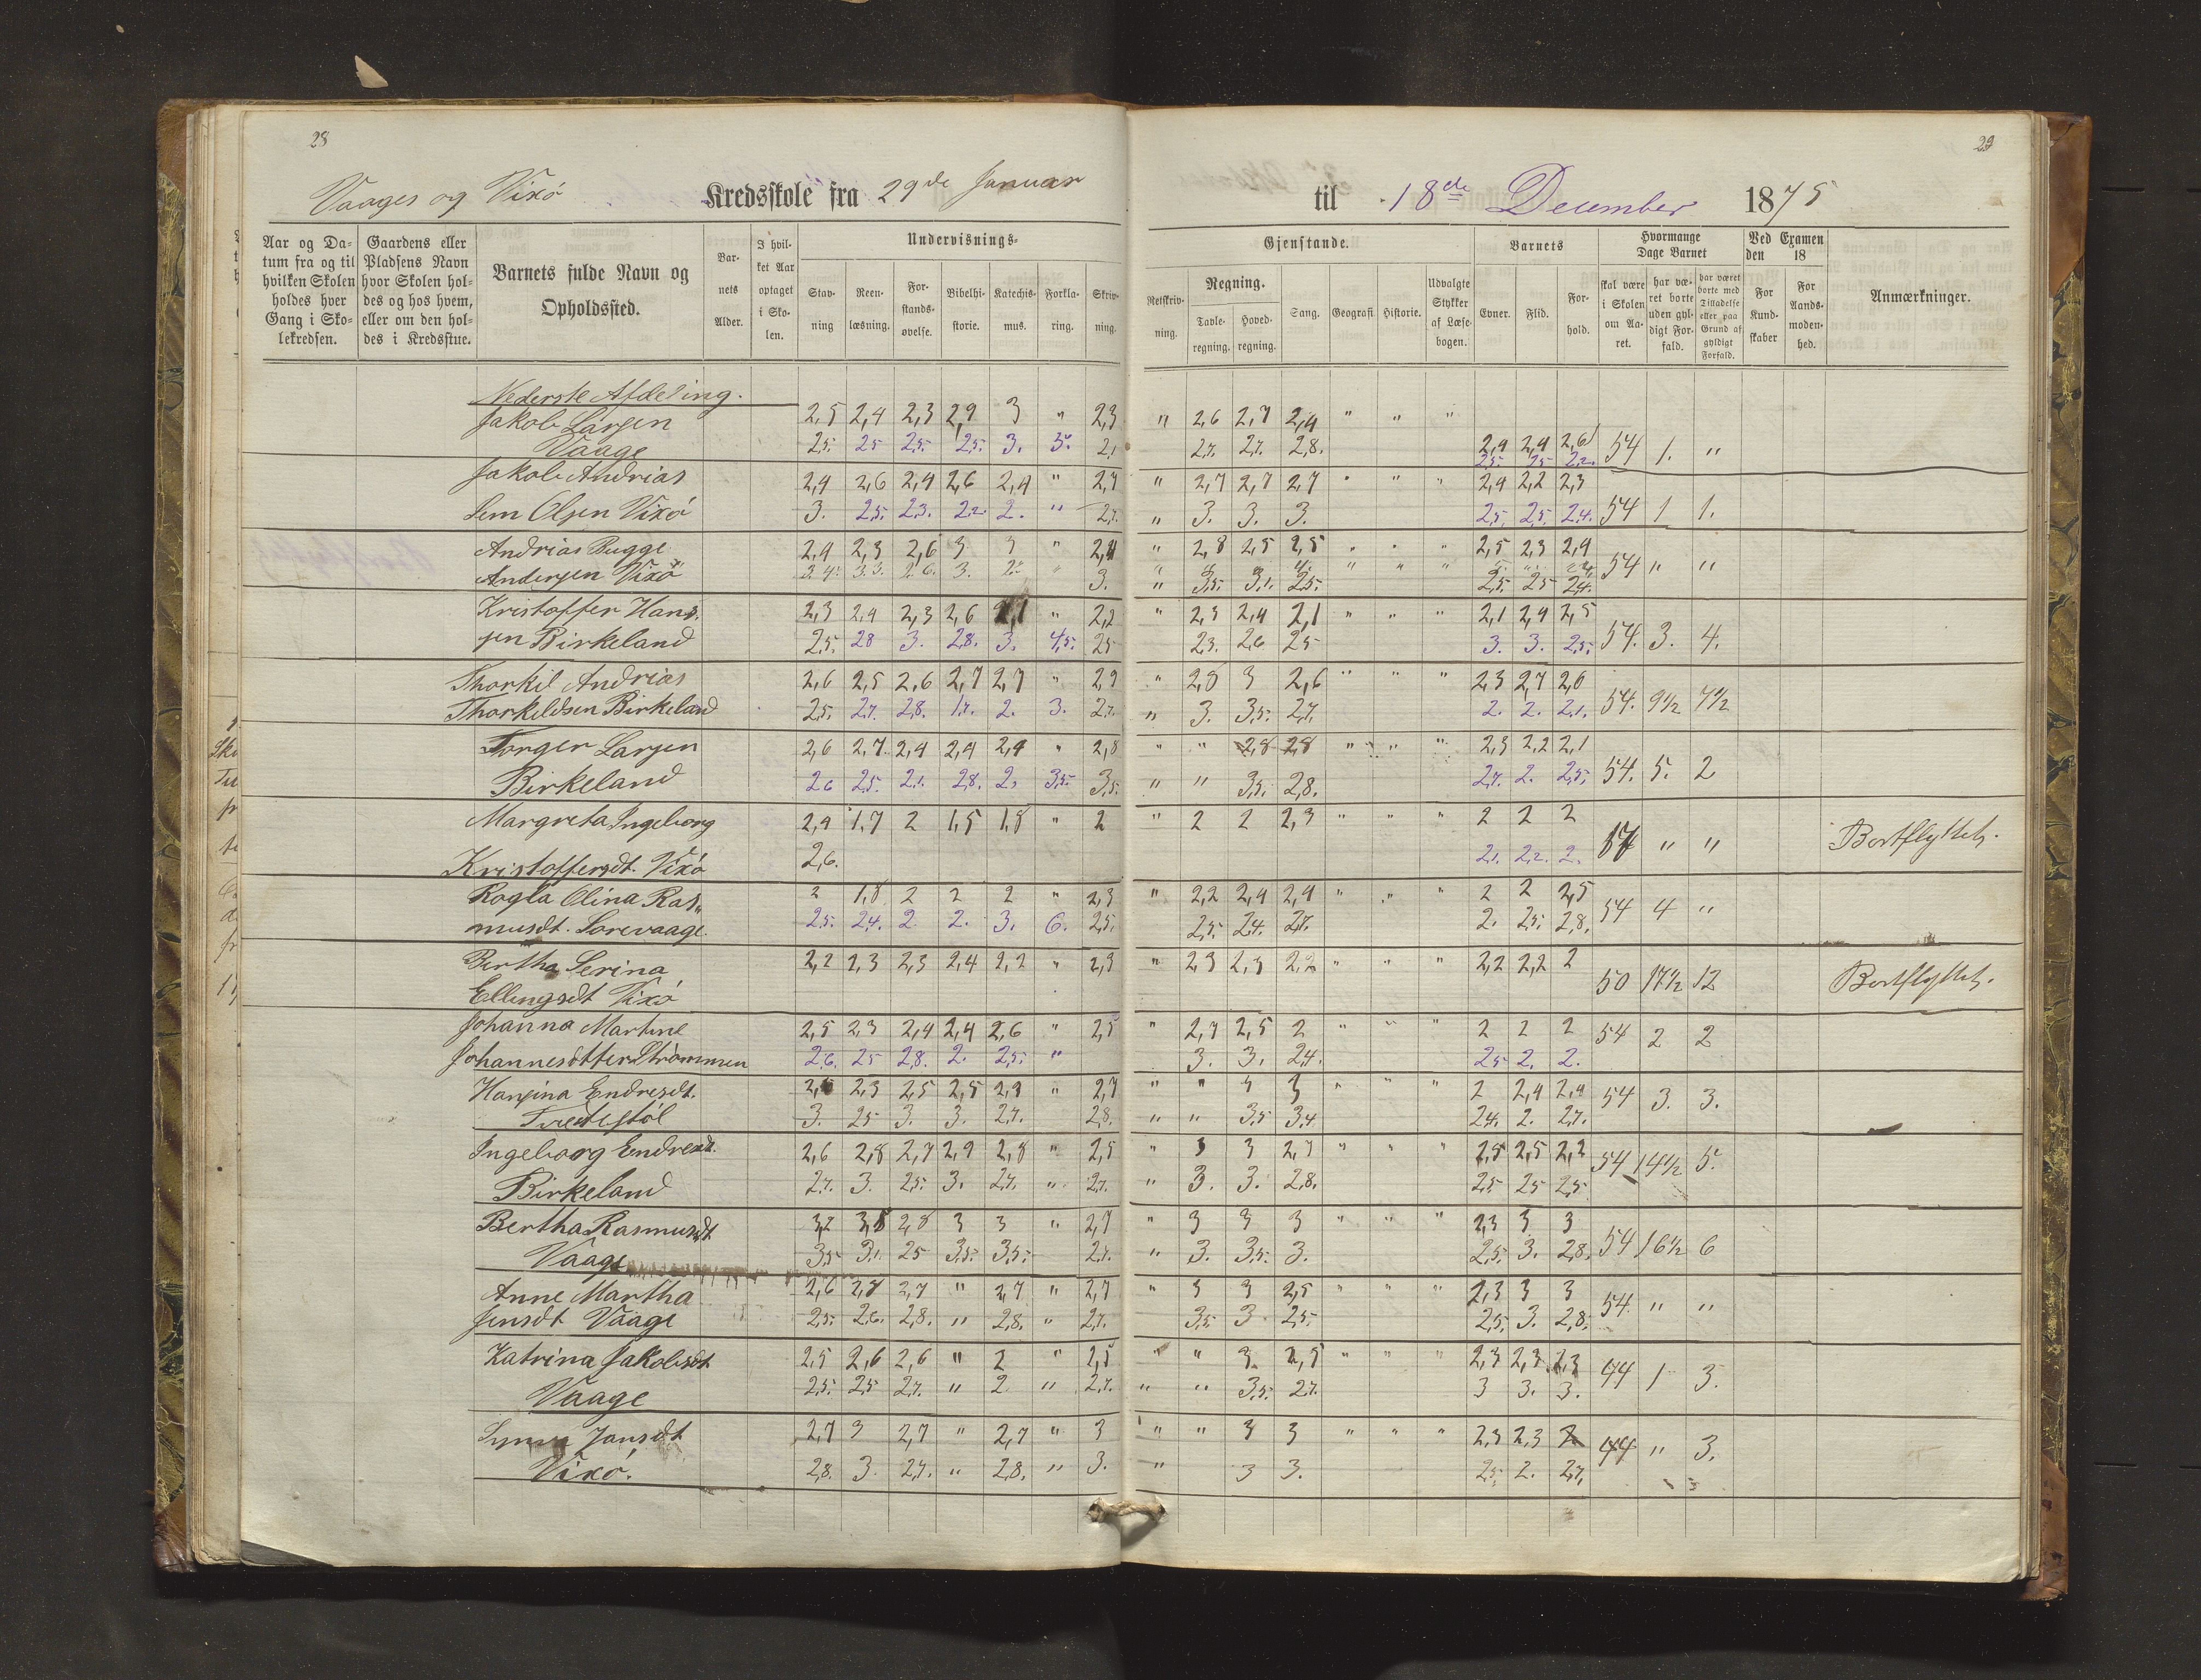 28
29
Vaages og Vixö Kredsskole fra 29de Januar til 18de December 1875
Aar og Datum fra og til hvilken Skolen holdes hver Gang i Skolekredsen.
Gaardens eller Pladsens Navn hvor Skolen holdes og hos hvem, eller om den holdes i Kredsstue.
Barnets fulde Navn og Opholdssted.
Barnets Alder.
I hvilket Aar optaget i Skolen.
Undervisnings-
Stavning
Reenlæsning.
Forstandsøvelse.
Bibelhistorie.
Katechismus.
Forklaring.
Skrivning.
Gjenstande.
Retskrivning.
Regning.
Tavleregning.
Hovedregning.
Sang.
Geografi
Historie.
Udvalgte Stykker af Læsebogen.
Barnets
Evner.
Flid.
Forhold.
Hvormange Dage Barnet
skal være i Skolen om Aaret.
har været borte uden gyldigt Forfald.
har været borte med Tilladelse eller paa Grund af gyldigt Forfald.
Ved Examen den 18
For Kundskaber
For Aandsmodenhed.
Anmærkninger.
Nederste Afdeling.
Jakob Larsen 2,5 2,4 2,3 2,9 3 " 2,3 " 2,6 2,7 2,4 " " "
Vaage 2,5. 2,5 2,5. 2,5. 3. 3. 2,1 2,7. 2,7. 2,8. 2,4 2,4 2,6 54 1. "
2,5. 2,5 2,2.
Jakob Andrias 2,4 2,6 2,4 2,6 2,4 " 2,7 " 2,7 2,7 2,7 " " " 2,4 2,2 2,3
Sem Olsen Vixö 3. 2,5. 2,3. 2,2. 2. " 2,7. " 3. 3. 3. 2,5. 2,5. 2,4. 54 1 1.
Andrias Bugge 2,4 2,3 2,6 3 3 " 2,4 " 2,8 2,5 2,5 " " " 2,5 2,3 2,4
Andersen Vixö 3. " 3,5. 3,1. 2,5. 2,5. 2,5 2,4. 54 " "
Kristoffer Han- 2,3 2,4 2,3 2,6 2,1 " 2,2 " 2,3 2,4 2,1 " " " 2,1 2,4 2,5
sen Birkeland 2,5. 2,8 3. 2,8. 3. 4,5. 2,5 2,3. 2,6 2,5 3. 3. 2,5. 54. 3. 4.
Thorkil Andrias 2,6 2,5 2,6 2,7 2,7 " 2,9 " 2,8 3 2,6 " " " 2,3 2,7 2,0
Thorkildsen Birkeland 2,5. 2,7. 2,8. 1,7. 2. 3. 2,7. " 3. 3,5. 2,7. 2. 2. 2,1. 54. 9½ 7½
Torger Larsen 2,6 2,7 2,4 2,4 2,4 " 2,8 " " 2,8 2,8 " " " 2,3 2,2 2,1
Birkeland 2,6 2,5. 2,1. 2,8. 2. 3,5. 3,5. " " 3,5. 2,8. 2,7. 2. 2,5. 54. 5. 2
Margreta Ingeborg 2,4 1,7 2 1,5 1,8 " 2 " 2 2 2,3 " " " 2 2 2
Kristoffersdt. Vixö 2,6. 2,1. 2,2. 2. 17 " " Bortflyttet.
Ragla Olina Ras- 2 1,8 2 2 2 " 2,3 " 2,2 2,4 2,4 " " " 2 2 2,5
musdt. Sörevaage. 2,5. 2,4. 2. 2. 3. 6. 2,5. 2,5. 2,4. 2,7. 2. 2,5. 2,8. 54 4 "
Bertha Serina 2,2 2,3 2,3 2,4 2,2 " 2,3 " 2,3 2,3 2,2 " " " 2,2 2,2 2
Ellingsdt Vixö 50 17½ 12 Bortflyttet.
Johanna Martine 2,5 2,3 2,4 2,4 2,6 " 2,5 " 2,7 2,5 2 " " " 2 2 2 54 2 2
Johannesdotter Strömmen 2,6. 2,5 2,8. 2. 2,5. " 3. 3. 2,4. 2,5 2. 2.
Hansina Endresdt. 2,3 2,5 2,5 2,3 " 2,7 " " 3 3 " " " 2 2,4 2,4 54 3. 3.
3. 2,5 3. 3. 2,7. 2,8. " " 3,5 3,4 2,4. 2. 2,7.
Ingeborg Endresdt. 2,6 2,8 2,7 2,9 2,8 " 2,5 " 3 3 2,7 " " " 2,5 2,5 2,2 54 14½ 5.
Birkeland 2,7. 3. 2,5. 3. 2,7. " 2,7. " 3. 3. 2,8. 2,5. 2,5 2,5
Bertha Rasmusdt 3,2 3,8 2,8 3 3 " 2,7 " 3 3 3 " " " 2,3 3 3
Vaage 3,5 3,1. 2,5 3,5. 3,5. 2,7. " 3. 3,5. 3. 2,5. 3. 2,8. 54 16½ 6
Anne Martha 2,6 2,7 2,7 " 2,7 " 2,7 " 3 3 2,5 " " " 2,3 3 3
Jensdt Vaage 2,5. 2,6. 2,8. " 2,8. " 2,7. 3,5. 3 2,5. 2,5. 3. 2,8. 54. " "
Katrina Jakobsdt 2,5 2,6 2,6 " 2 " 2,5 " " 3 2,5 " " " 2,3 2,3 2,3
Vaage 2,5. 2,5 2,7. " 2. " 2,7. " " 3,5. 2,7. 3 3. 3. 44 1 3.
Jansdt 2,7 3 2,7 " 2,7 " 3 " " 3 3 " " " 2,3 2,3 2
Vixö. 2,8. 3. 2,7. " 2,8. " 3. " 3 3. 2,5. 2. 2,7. 44 " 3.